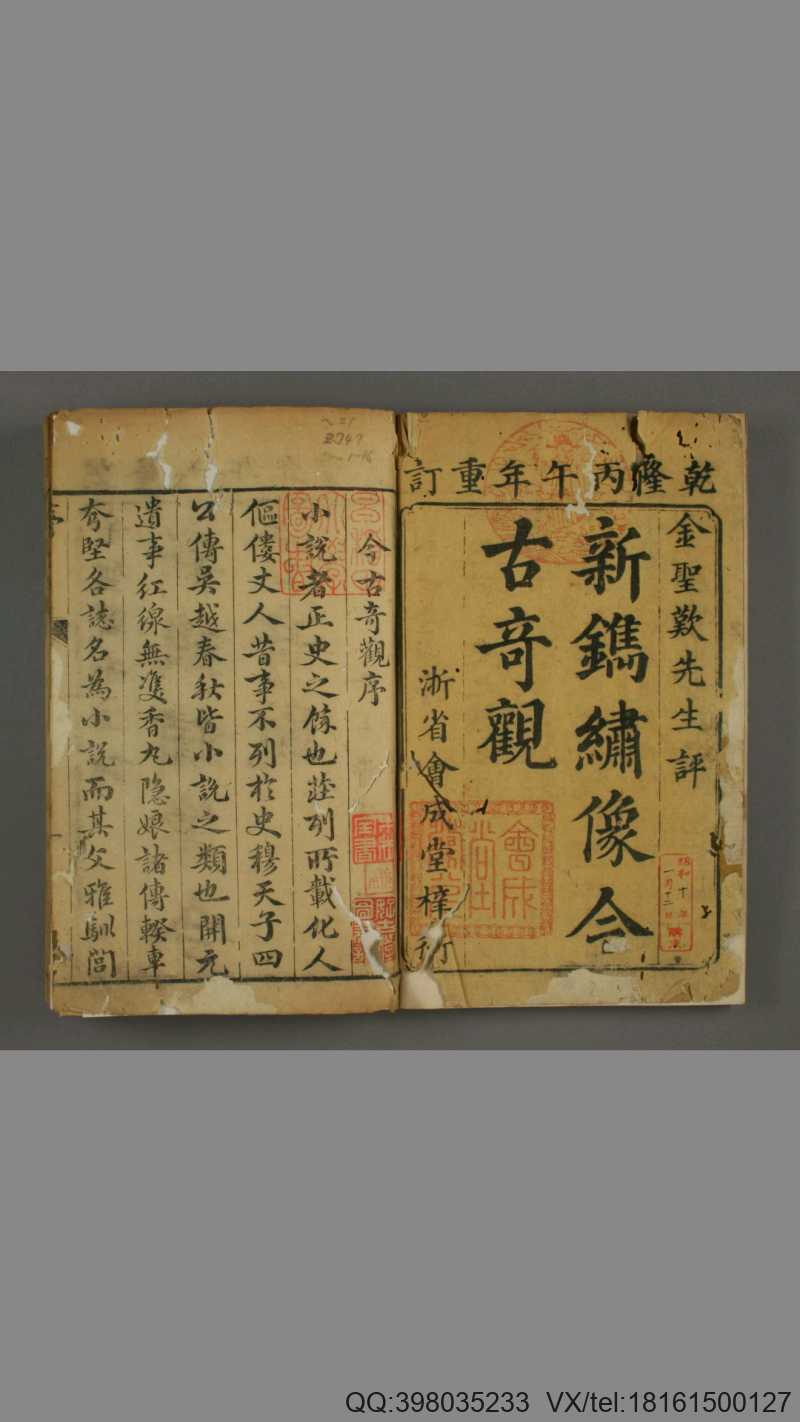 乾隆丙午年重訂
金聖歎先生評
新鐫繡像今
古奇觀
浙省會成堂梓行
今古奇觀序
小說者正史之餘也莊列所載化人
傴僂丈人昔事不列於史穆天子四
公傳吳越春秋皆小說之類也開元
遺事紅線無雙香丸隱娘諸傳輟車
夸堅各誌名為小說而其文雅馴閭
昭和十年
一月十二日
QQ:398035233 VX/tel:18161500127